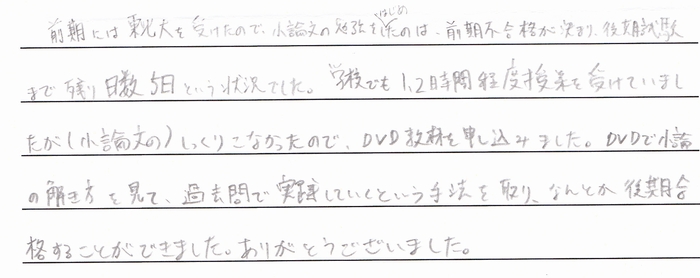 前期には東北大を受けたので、小論文の勉強をはじめたのは、前期不合格が決まり、後期試験
まで残り日数5日という状況でした。学校でも1,2時間程度授業を受けていまし
たが(小論文の)しっくりこなかったので、DVD教材を申し込みました。DVDで小論
の解き方を見て、過去問で実践していくという手法を取り、なんとか後期合
格することができました。ありがとうございました。